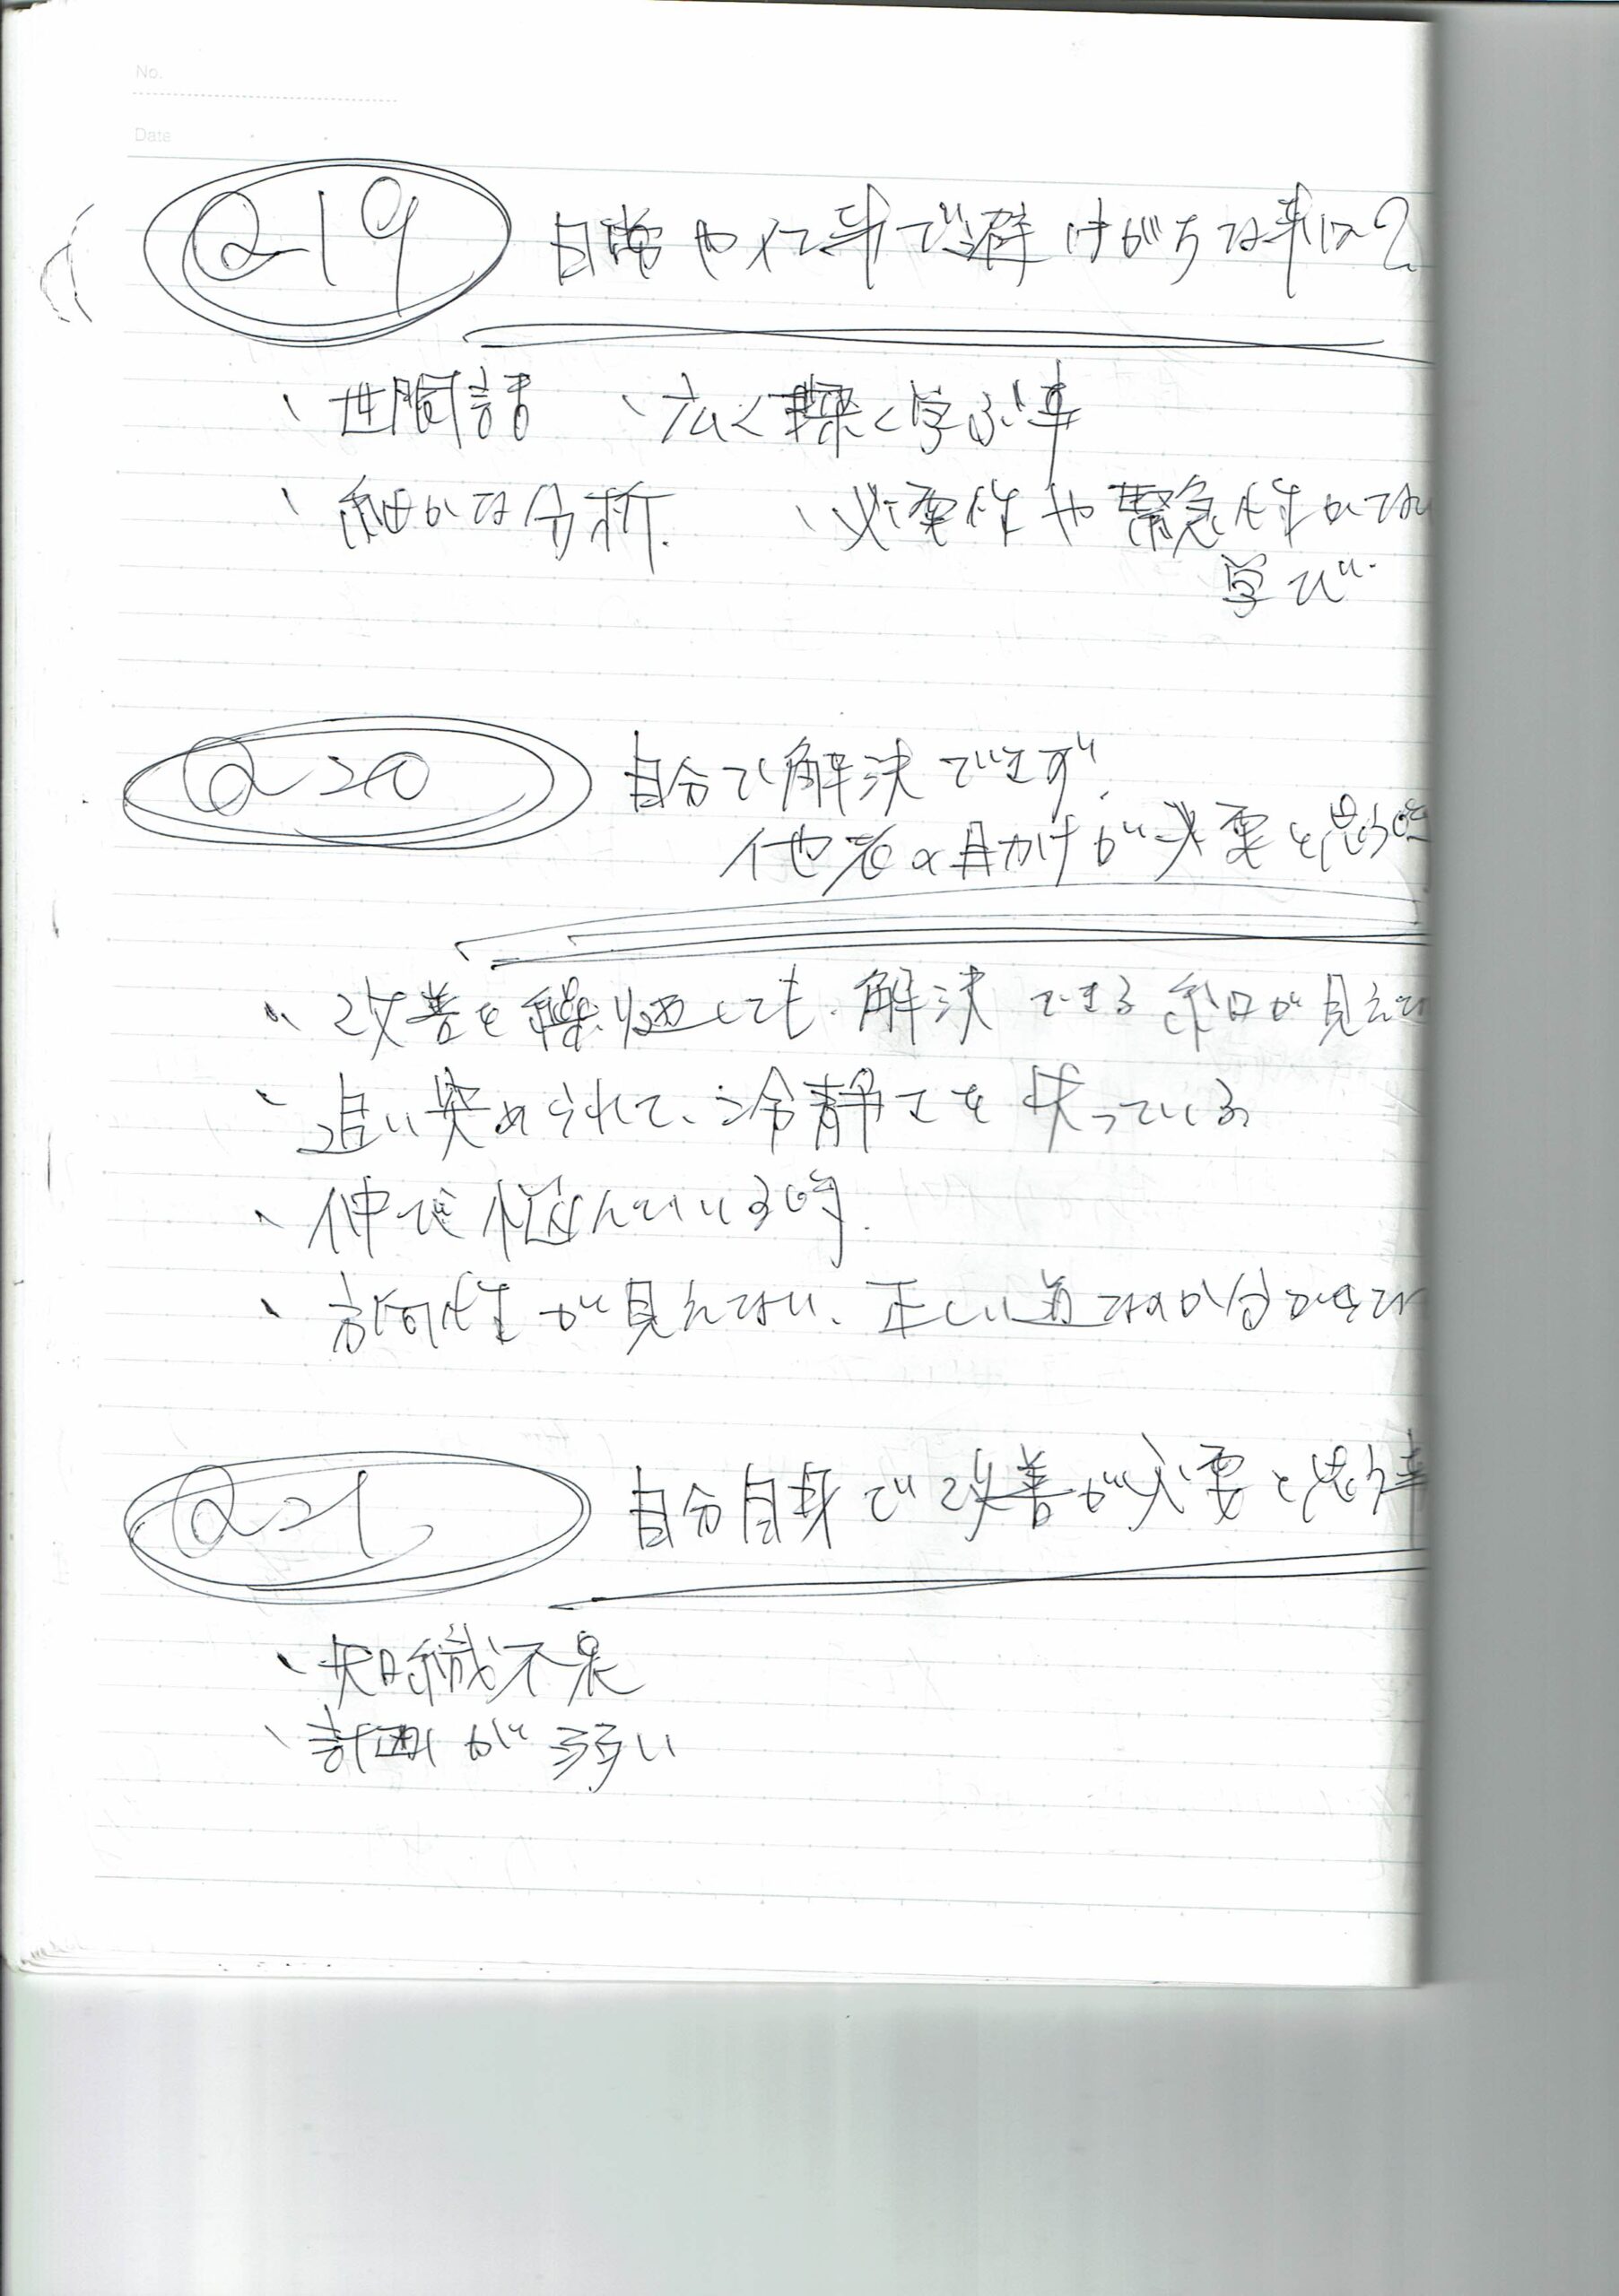 No.
Date
Q-19 日常や仕事で避けがちな事は?
、世間話 、広く深く学ぶ事
、細かな分析. 、必要性や緊急性がない
学び
Q 20 自分で解決できず、
他者の助けが必要と思う時
、改善を繰り返しても、解決できる糸口が見えな
、追い突められて、冷静さを失っている
、伸び悩んでいる時.
、方向性が見えない、正しい道なのか分からな
Q 21 自分自身で改善が必要と思う事
、知識不足
、計画が弱い